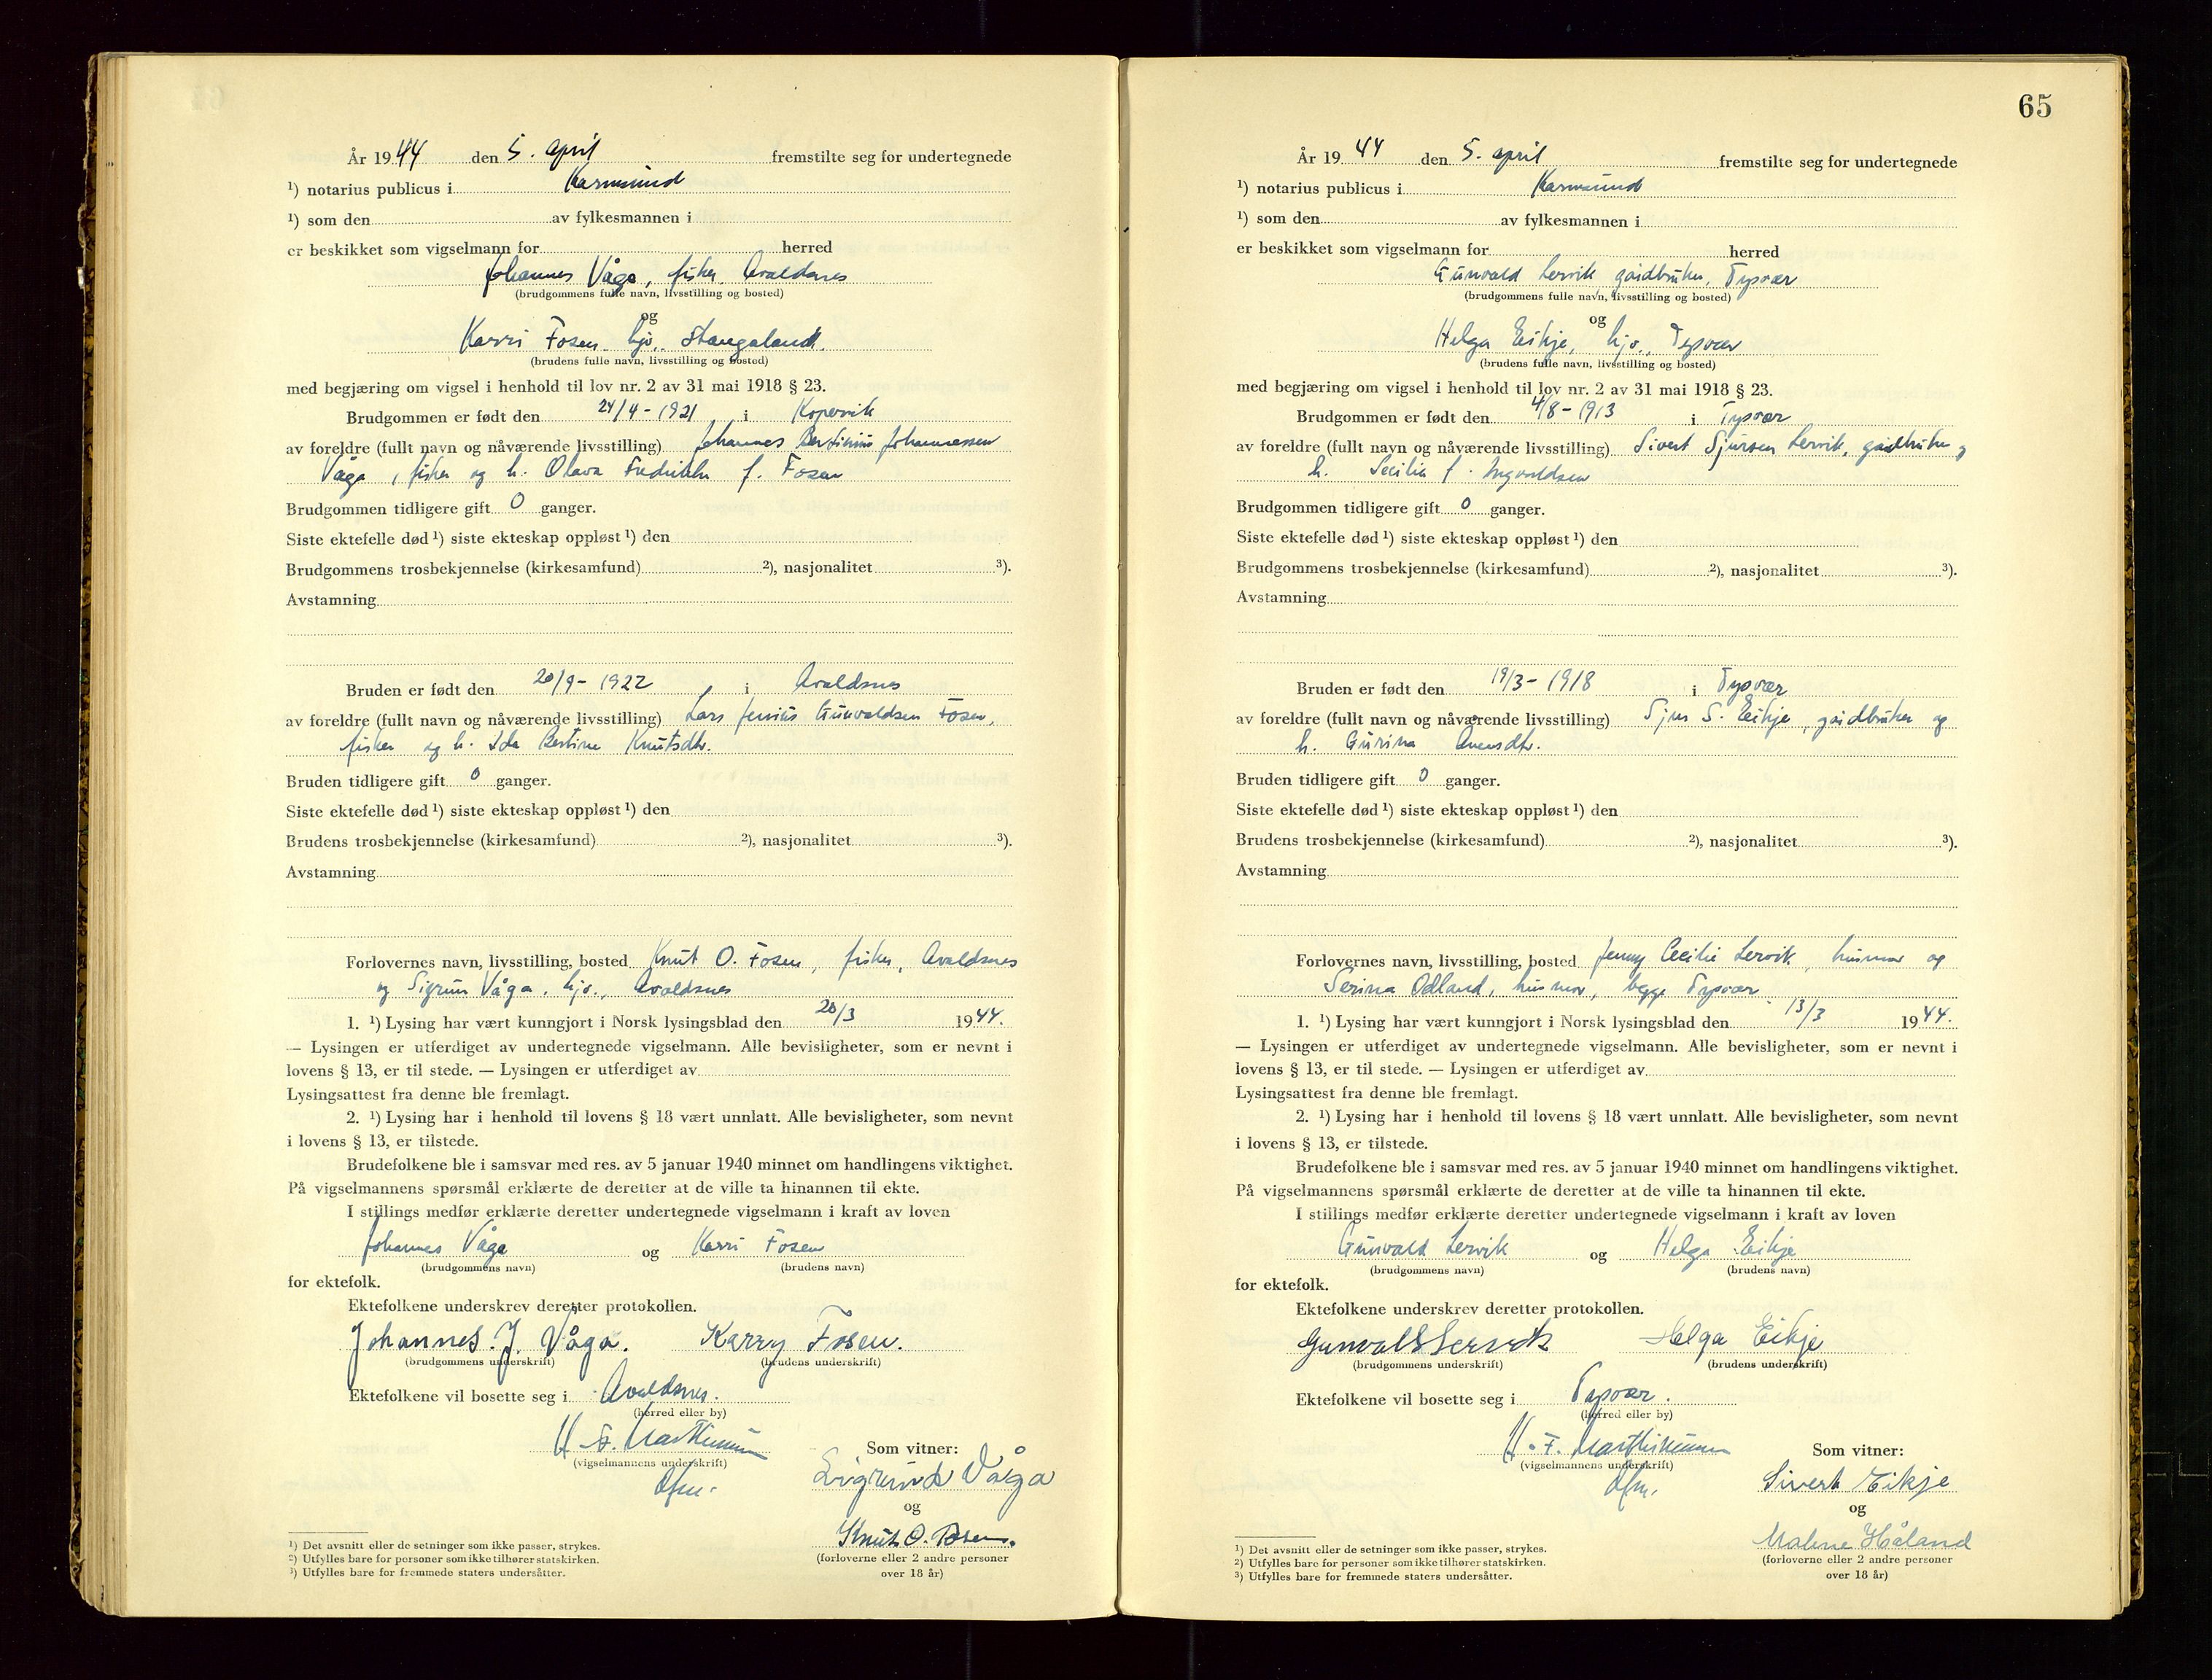 År 1944 den 5. april fremstilte seg for undertegnede
¹) notarius publicus i Karmsund
¹) som den av fylkesmannen i
er beskikket som vigselmann for herred
Johannes Våga, fisker, Avaldsnes
(brudgommens fulle navn, livsstilling og bosted)
og
Karri Fosen hjv., Stangaland.
(brudens fulle navn, livsstilling og bosted)
med begjæring om vigsel i henhold til lov nr. 2 av 31 mai 1918 § 23.
Brudgommen er født den 24/4 - 1921 i Kopervik
av foreldre (fullt navn og nåværende livsstilling) Johannes Bertinius Johannessen
Våga, fisker og h. Olava Fredrikke f. Fosen
Brudgommen tidligere gift 0 ganger.
Siste ektefelle død ¹) siste ekteskap oppløst ¹) den
Brudgommens trosbekjennelse (kirkesamfund) ²), nasjonalitet ³).
Avstamning
Bruden er født den 20/9 - 1922 i Avaldsnes
av foreldre (fullt navn og nåværende livsstilling) Lars Gunvaldsen Fosen,
fisker og h. Ida Bertine Knutsdtr.
Bruden tidligere gift 0 ganger.
Siste ektefelle død ¹) siste ekteskap oppløst ¹) den
Brudens trosbekjennelse (kirkesamfund) ²), nasjonalitet ³).
Avstamning
Forlovernes navn, livsstilling, bosted Knut O. Fosen, fisker, Avaldsnes
og Sigrun Våga, hjv., Avaldsnes
1. ¹) Lysing har vært kunngjort i Norsk lysingsblad den 20/3 1944.
— Lysingen er utferdiget av undertegnede vigselmann. Alle bevisligheter, som er nevnt i
lovens § 13, er til stede. — Lysingen er utferdiget av
Lysingsattest fra denne ble fremlagt.
2. ¹) Lysing har i henhold til lovens § 18 vært unnlatt. Alle bevisligheter, som nevnt
i lovens § 13, er tilstede.
Brudefolkene ble i samsvar med res. av 5 januar 1940 minnet om handlingens viktighet.
På vigselmannens spørsmål erklærte de deretter at de ville ta hinannen til ekte.
I stillings medfør erklærte deretter undertegnede vigselmann i kraft av loven
Johannes Våga og Karri Fosen
(brudgommens navn) (brudens navn)
for ektefolk.
Ektefolkene underskrev deretter protokollen.
Johannes. J. Våga. Karry Fosen.
(brudgommens underskrift) (brudens underskrift)
Ektefolkene vil bosette seg i Avaldsnes.
(herred eller by)
(vigselmannens underskrift)
Som vitner:
Sigrund Våga
og
Knut O. Fosen.
(forloverne eller 2 andre personer
over 18 år)
¹) Det avsnitt eller de setninger som ikke passer, strykes.
²) Utfylles bare for personer som ikke tilhører statskirken.
³) Utfylles bare for fremmede staters undersåtter.
65
År 1944 den 5. april fremstilte seg for undertegnede
¹) notarius publicus i Karmsund
¹) som den av fylkesmannen i
er beskikket som vigselmann for herred
Gunvald Lervik gårdbruker, Tysvær
(brudgommens fulle navn, livsstilling og bosted)
og
Helga Eikje, hjv., Tysvær
(brudens fulle navn, livsstilling og bosted)
med begjæring om vigsel i henhold til lov nr. 2 av 31 mai 1918 § 23.
Brudgommen er født den 4/8 - 1913 i Tysvær
av foreldre (fullt navn og nåværende livsstilling) Sivert Sjursen Lervik, gårdbruker og
h. Secilie f. Ingvaldsen
Brudgommen tidligere gift 0 ganger.
Siste ektefelle død ¹) siste ekteskap oppløst ¹) den
Brudgommens trosbekjennelse (kirkesamfund) ²), nasjonalitet ³).
Avstamning
Bruden er født den 19/3 - 1918 i Tysvær
av foreldre (fullt navn og nåværende livsstilling) Sjur S. Eikje, gårdbruker og
h. Gurina
Bruden tidligere gift 0 ganger.
Siste ektefelle død ¹) siste ekteskap oppløst ¹) den
Brudens trosbekjennelse (kirkesamfund) ²), nasjonalitet ³).
Avstamning
Forlovernes navn, livsstilling, bosted Jenny Cecilie Lervik, husmor og
Serina Odland, husmor, begge Tysvær
1. ¹) Lysing har vært kunngjort i Norsk lysingsblad den 13/3 1944.
— Lysingen er utferdiget av undertegnede vigselmann. Alle bevisligheter, som er nevnt i
lovens § 13, er til stede. — Lysingen er utferdiget av
Lysingsattest fra denne ble fremlagt.
2. ¹) Lysing har i henhold til lovens § 18 vært unnlatt. Alle bevisligheter, som nevnt
i lovens § 13, er tilstede.
Brudefolkene ble i samsvar med res. av 5 januar 1940 minnet om handlingens viktighet.
På vigselmannens spørsmål erklærte de deretter at de ville ta hinannen til ekte.
I stillings medfør erklærte deretter undertegnede vigselmann i kraft av loven
Gunvald Lervik og Helga Eikje
(brudgommens navn) (brudens navn)
for ektefolk.
Ektefolkene underskrev deretter protokollen.
Gunvald Lervik Helga Eikje
(brudgommens underskrift) (brudens underskrift)
Ektefolkene vil bosette seg i Tysvær.
(herred eller by)
(vigselmannens underskrift)
Som vitner:
Sivert Eikje
og
Malene Håland
(forloverne eller 2 andre personer
over 18 år)
¹) Det avsnitt eller de setninger som ikke passer, strykes.
²) Utfylles bare for personer som ikke tilhører statskirken.
³) Utfylles bare for fremmede staters undersåtter.